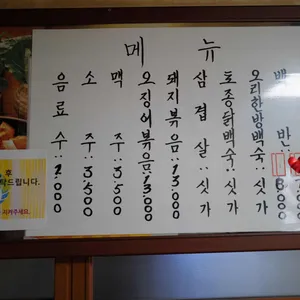 메뉴
백반:8000
오리한방백숙:싯가
토종닭백숙:싯가
삼겹살:싯가
돼지볶음:13000
오징어볶음:13000
맥주:3500
소주:3500
음료수:2000
후
탁드립니다.
지켜주세요.